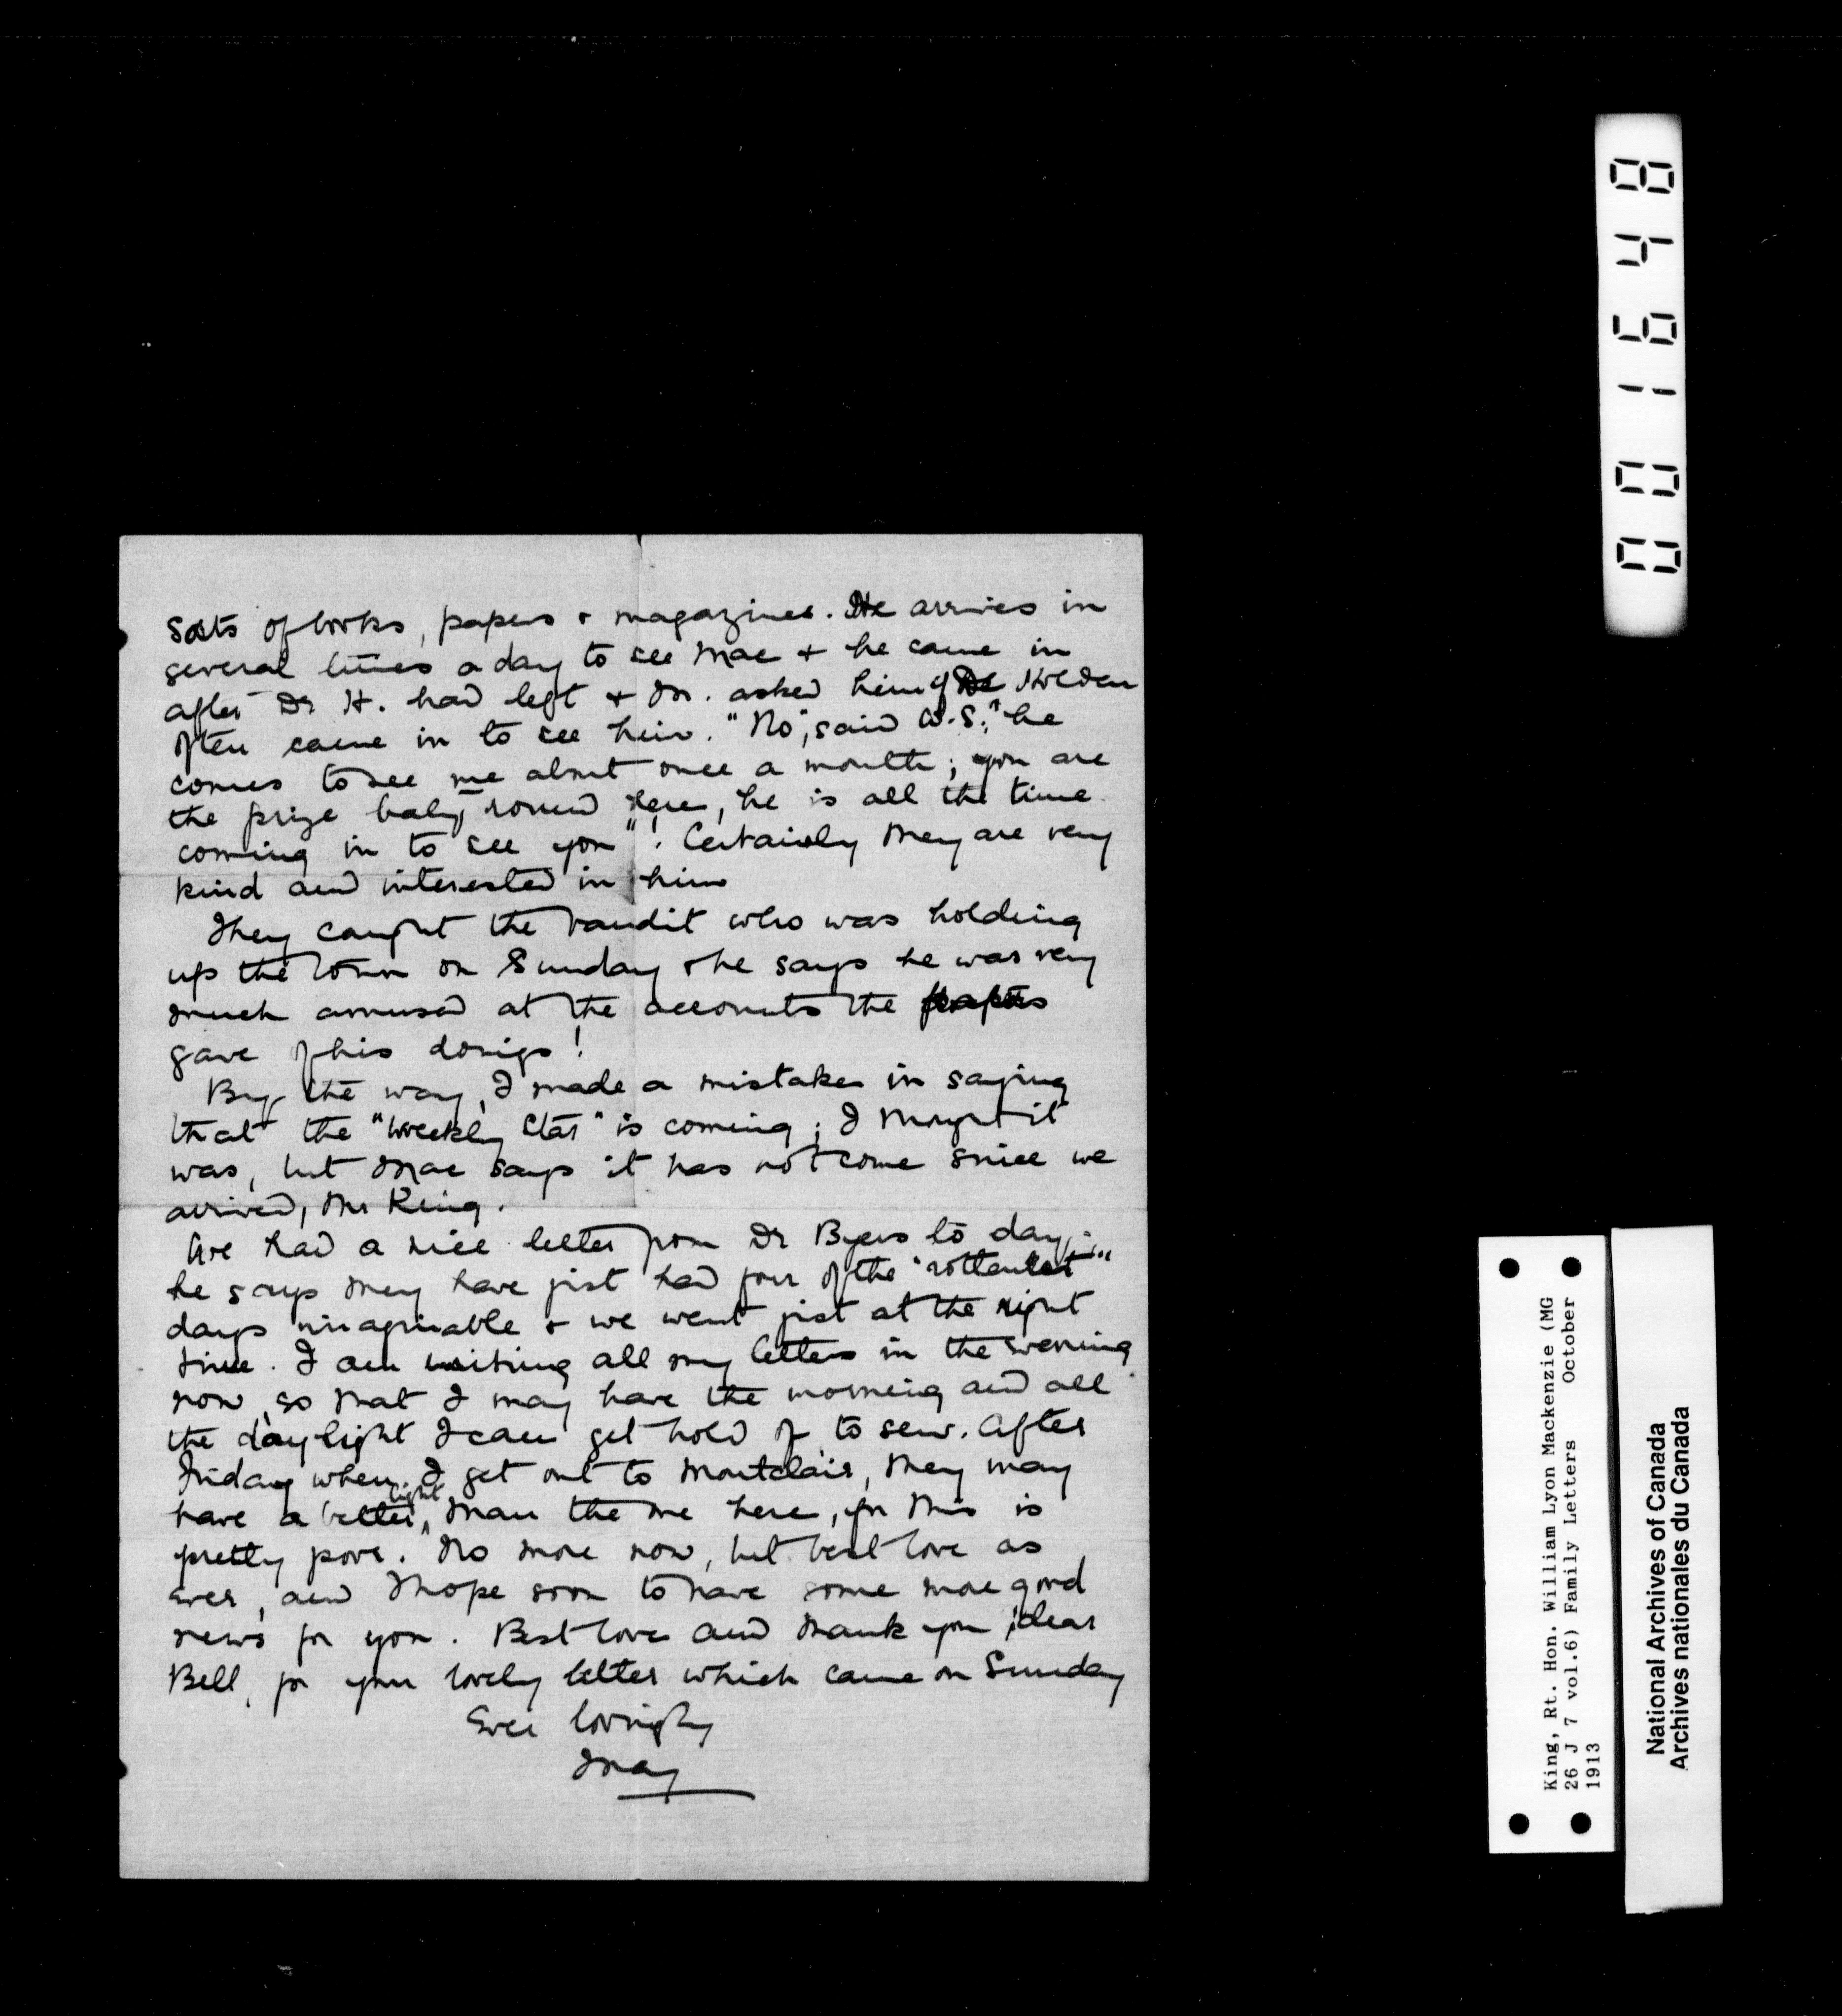 sorts of books, papers & magazines. He arrives in
several times a day to see Mac & he came in
after Dr H. had left & M. asked him if Dr Holden
often came in to see him. "No", said W.S., "he
comes to see me about once a month; you are
the prize baby round here, he is all the time
coming in to see you"! Certainly they are very
kind and interested in him
They caught the bandit who was holding
up the town on Sunday & he says he was very
much amused at the accounts the papers
gave of his doings!
By the way, I made a mistake in saying
that the "Weekly Star" is coming; I thought it
was, but Mac says it has not come since we
arrived, Mr King.
We had a nice letter from Dr Byers to day;
he says they have just had four of the "rottenest"
days imaginable & we went just at the right
time. I am writing all my letters in the evening
now, so that I may have the morning and all
the daylight I can get hold of to sew. After
Friday when I get out to Montclair, they may
have a better light than the one here, for this is
pretty poor. No more now, but best love as
ever, and I hope soon to have some more good
news for you. Best love and thank you, dear
Bell, for your lovely letter which came on Sunday
Ever lovingly
May
0001648
King, Rt. Hon. William Lyon Mackenzie (MG
26 J 7 vol.6) Family Letters October
1913
National Archives of Canada
Archives nationales du Canada